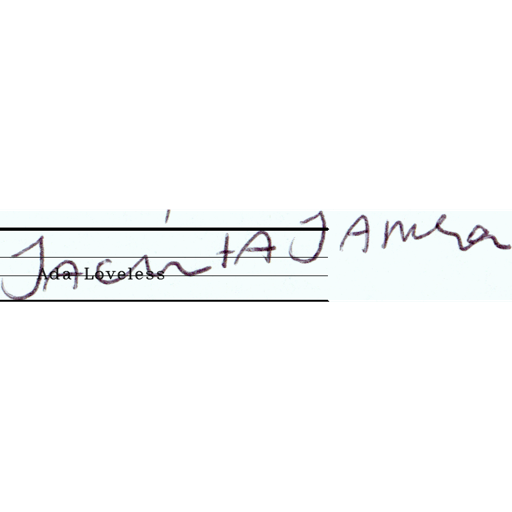 Jacinta Jamesa
Ada Loveless